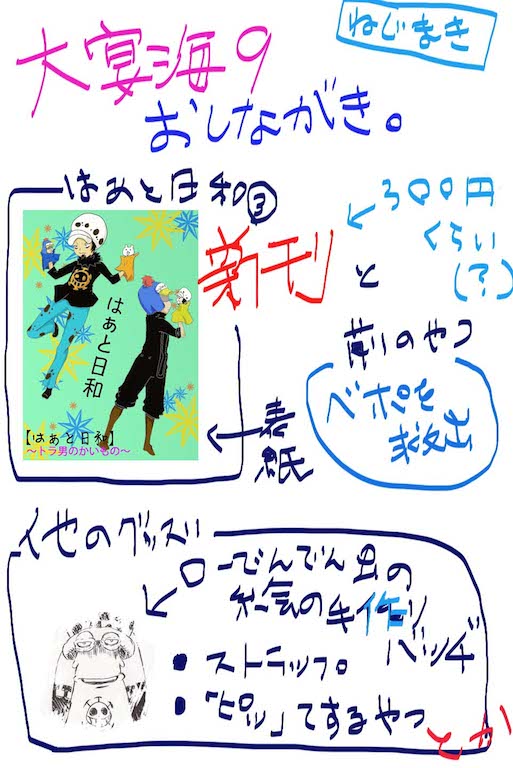 ねじまき
大宴海9
おしながき。
はぁと日和③
新刊
300円
くらい
(?)
と
前のやつ
ベポを
救出
はぁと日和
【はぁと日和】
～トラ男のかいもの～
表
紙
他のグッズ
ローでんでん虫の
手作り
バッヂ
・ストラップ。
・「ピッ」てするやつ
とか